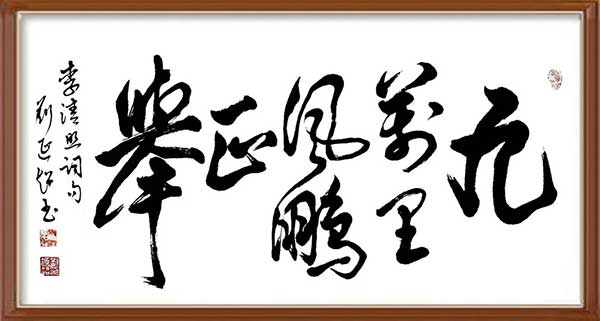 九
萬里
風鵬
正
舉
李清照詞句